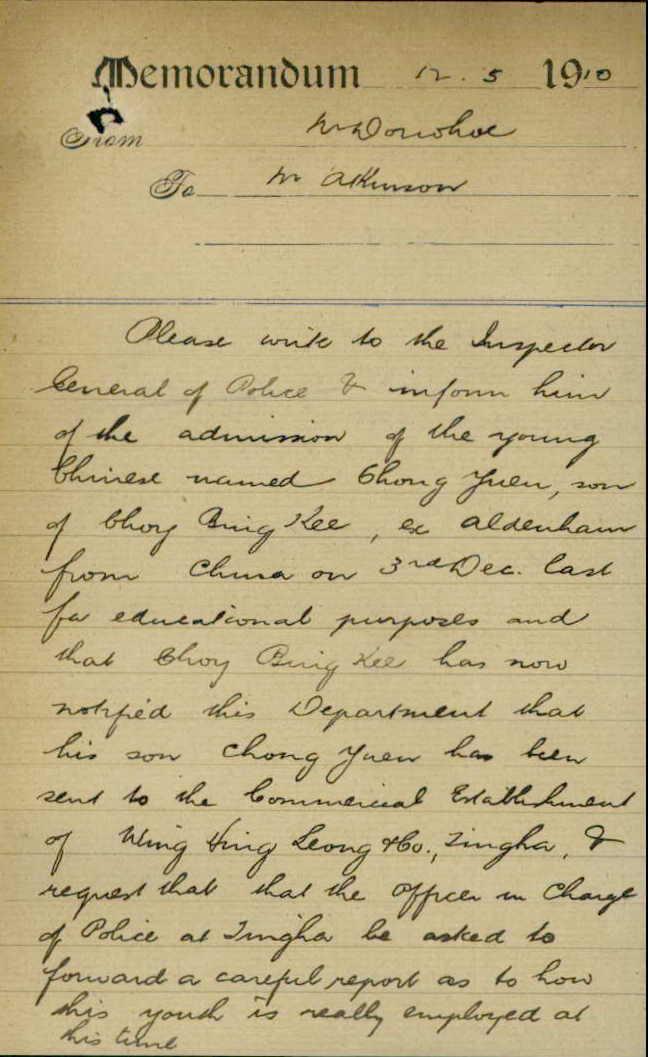 Memorandum 12.5 1910
From Mr Donohoe
To Mr Atkinson
Please write to the Inspector
General of Police & inform him
of the admission of the young
Chinese named Chong Yuen, son
of Choy Bing Kee, ex Aldenham
from China on 3rd Dec. last
for educational purposes and
that Choy Bing Kee has now
notified this Department that
his son Chong Yuen has been
sent to the Commercial Establishment
of Wing Hing Leong & Co., Tingha, &
request that that the Officer in Charge
of Police at Tingha be asked to
forward a careful report as to how
this youth is really employed at
this time